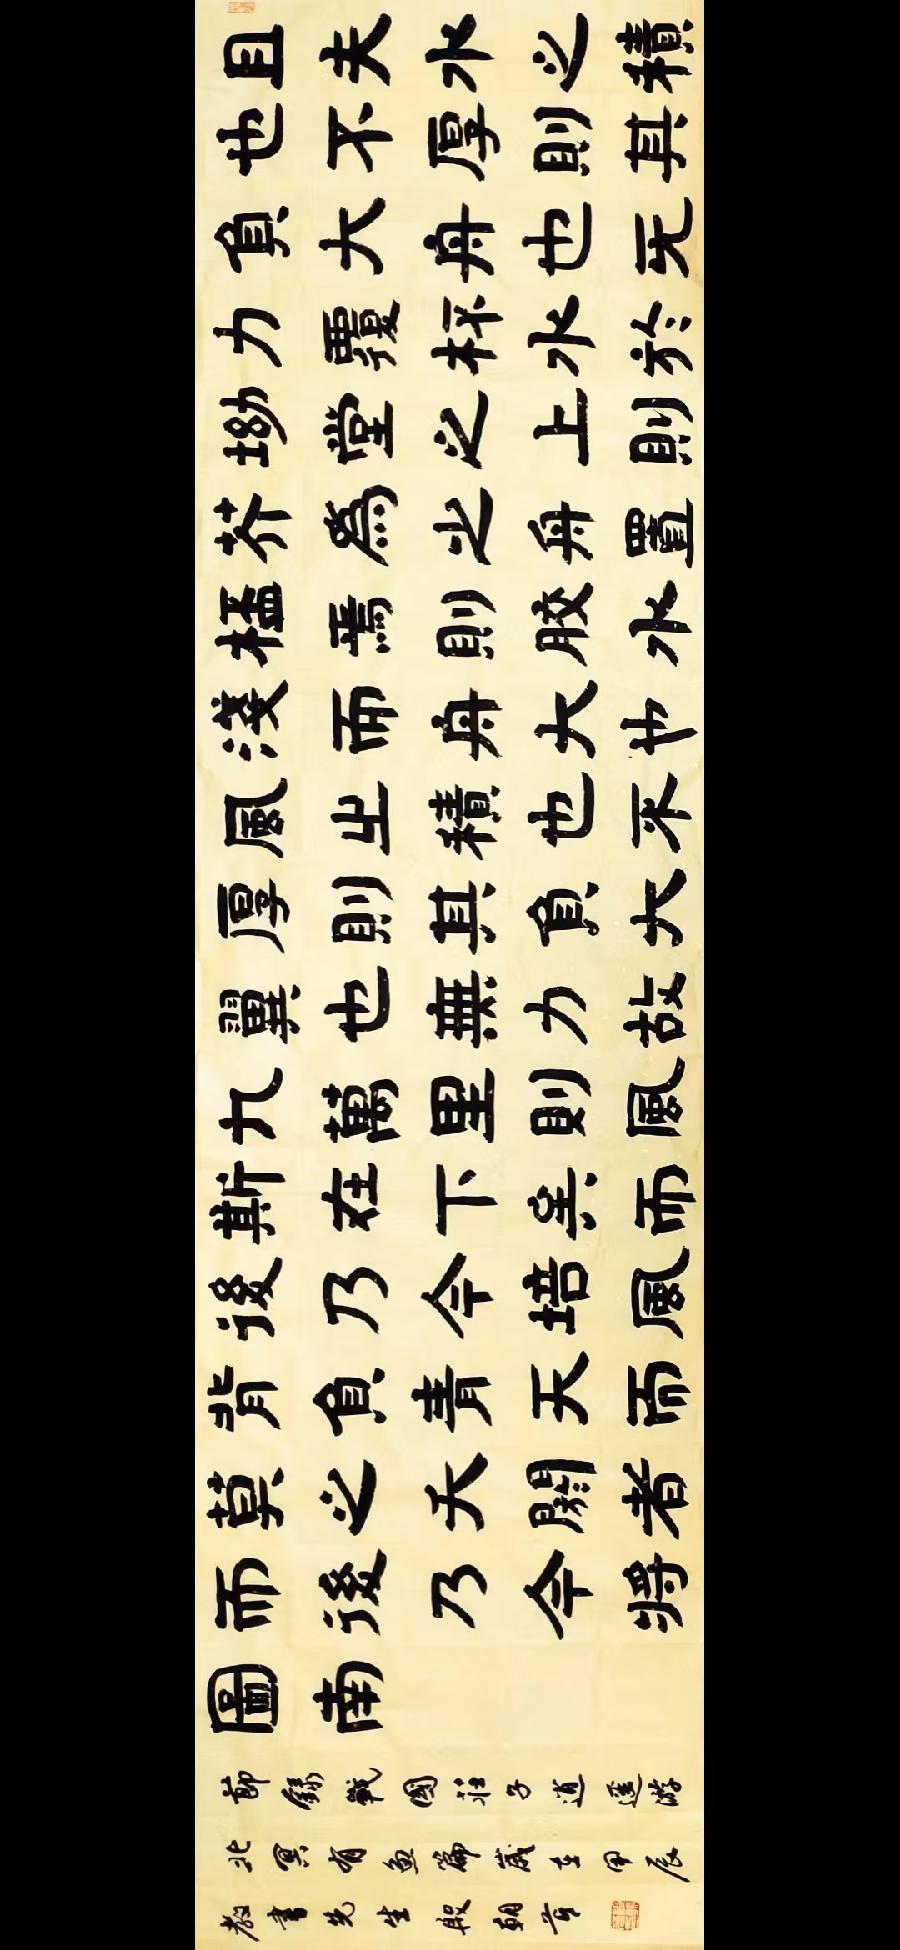 且夫水之積
也不厚則其
負大舟也无
力覆杯水於
坳堂之上則
芥為之舟置
杯焉則膠水
淺而舟大也
風之積也不
厚則其負大
翼也無力故
九萬里則風
斯在下矣而
後乃今培風
背負青天而
莫之夭閼者
而後乃今將
圖南
節錄戰國莊子逍遙游
北冥有魚篇歲在甲辰
教書先生殷朝